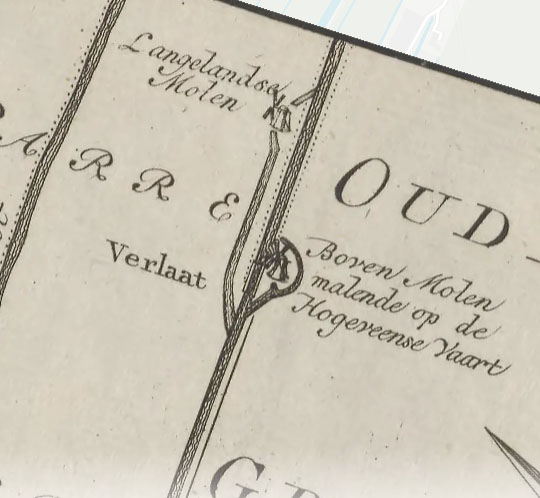 Langelandse
Molen
ARRE
OUD-
Verlaat
Boven Molen
malende op de
Hogeveense Vaart
G